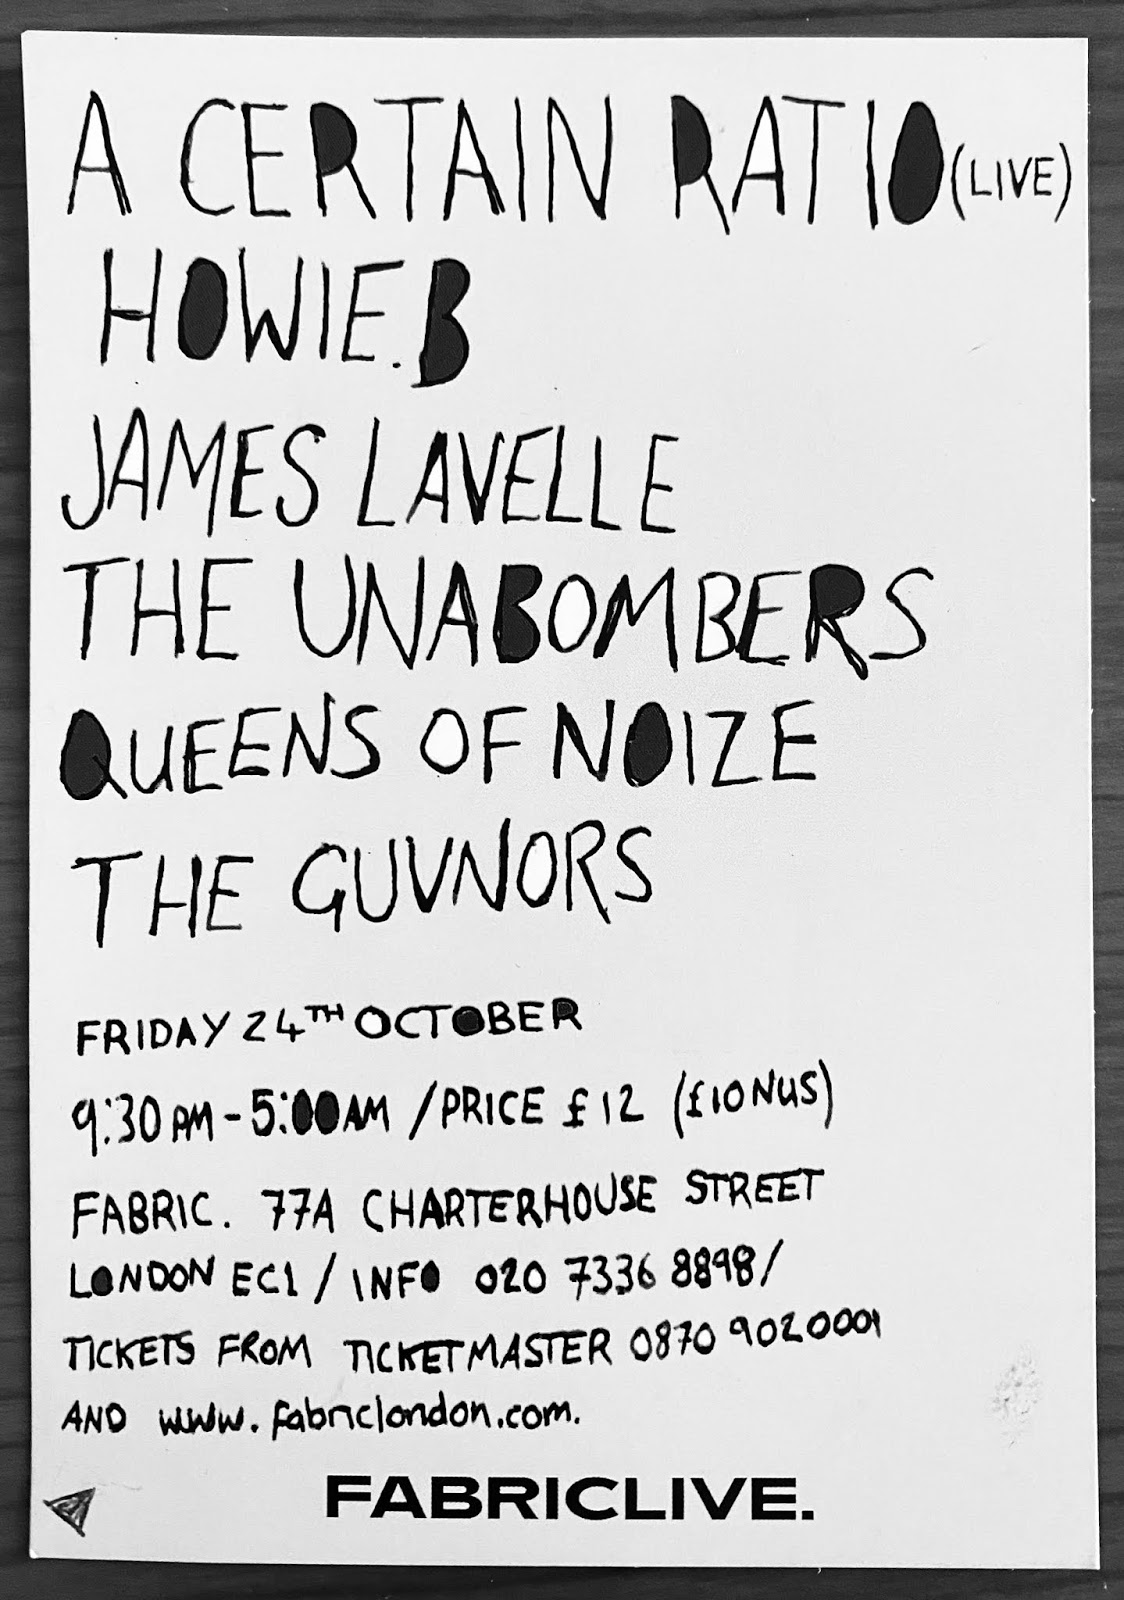 A CERTAIN RATIO (LIVE)
HOWIE.B
JAMES LAVELLE
THE UNABOMBERS
QUEENS OF NOIZE
THE GUVNORS
FRIDAY 24TH OCTOBER
9:30PM - 5:00AM / PRICE £12 (£10NUS)
FABRIC. 77A CHARTERHOUSE STREET
LONDON EC1 / INFO 020 7336 8898/
TICKETS FROM TICKETMASTER 0870 902 0001
AND www.fabriclondon.com.
FABRICLIVE.